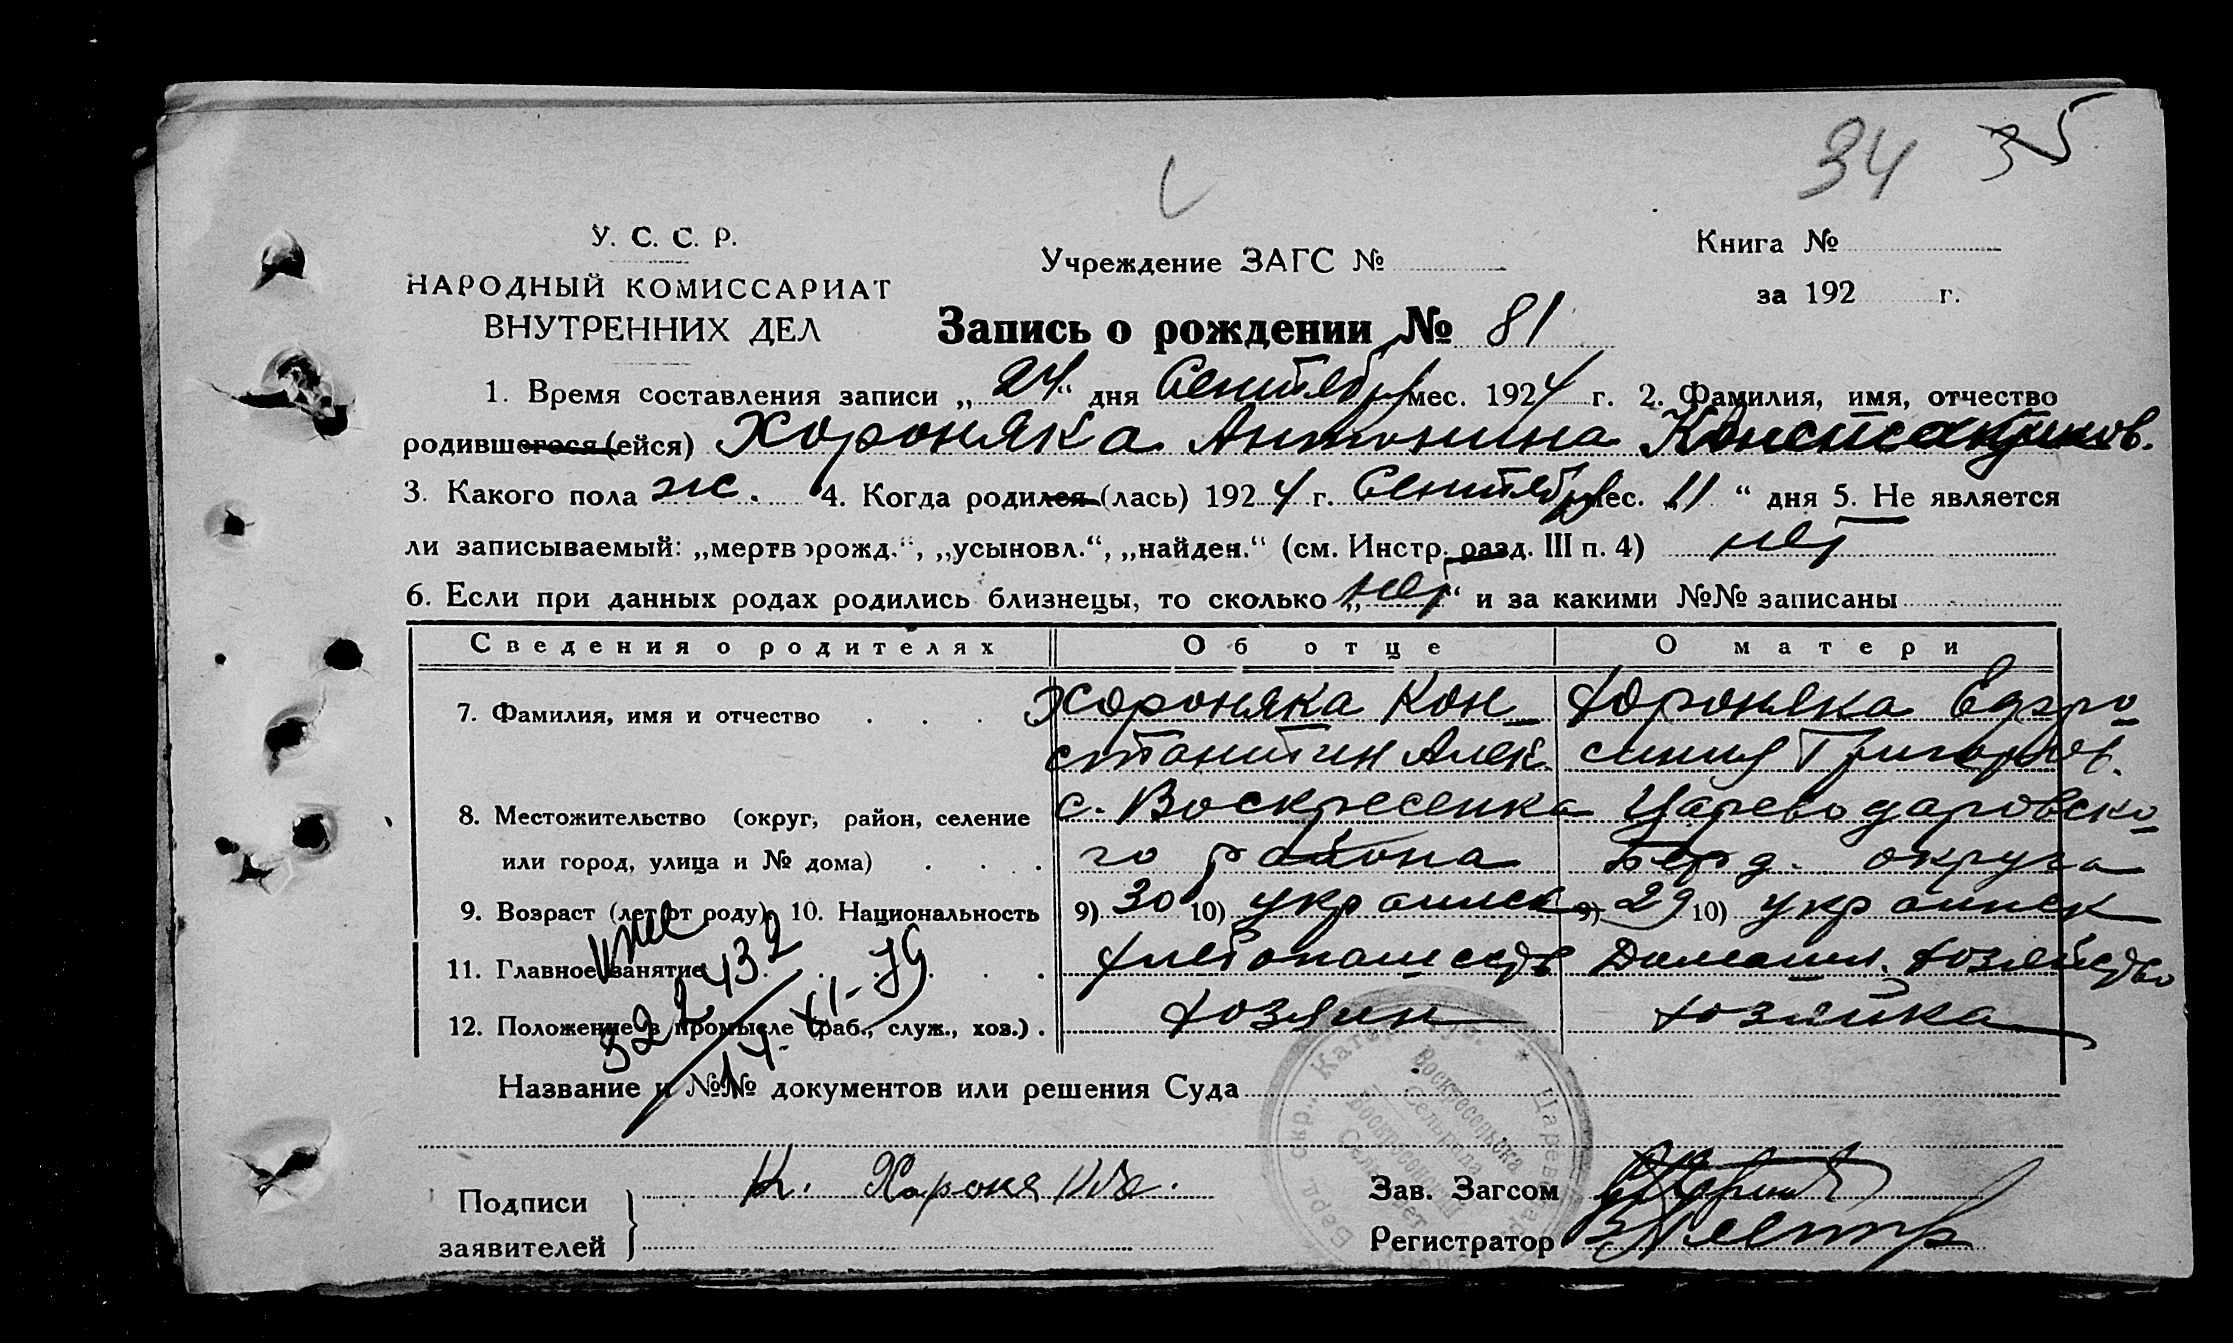 34 35
У. С. С. Р.
НАРОДНЫЙ КОМИССАРИАТ
ВНУТРЕННИХ ДЕЛ
Учреждение ЗАГС №
Книга №
за 192 г.
Запись о рождении № 81
1. Время составления записи „24“ дня Сентября мес. 1924 г. 2. Фамилия, имя, отчество
родившегося (ейся) Хороняка Антонина Константинов.
3. Какого пола ж. 4. Когда родился (лась) 1924 г. Сентября мес. „11“ дня 5. Не является
ли записываемый: „мертворожд.“, „усыновл.“, „найден.“ (см. Инстр. разд. III п. 4) нет
6. Если при данных родах родились близнецы, то сколько „нет“ и за какими №№ записаны
Сведения о родителях Об отце О матери
7. Фамилия, имя и отчество . . . Хороняка Кон- Хороняка Евдо-
стантин Алек. синия Григорьев.
8. Местожительство (округ, район, селение с. Воскресенка Цареводаровско-
или город, улица и № дома) . . . го района Берд. округа
9. Возраст (лет от роду) 10. Национальность 9) 30 10) украинск 9) 29 10) украинск
11. Главное занятие . . . . хлебопашество Домашн. хозяйство
12. Положение в промысле (раб., служ., хоз.) . хозяин хозяйка
322432
14.XI-79
Название и №№ документов или решения Суда
Воскресенська
Сельрада
Воскресенский
Сельсовет
Подписи
заявителей
К. Хороняка.
Зав. Загсом
Регистратор